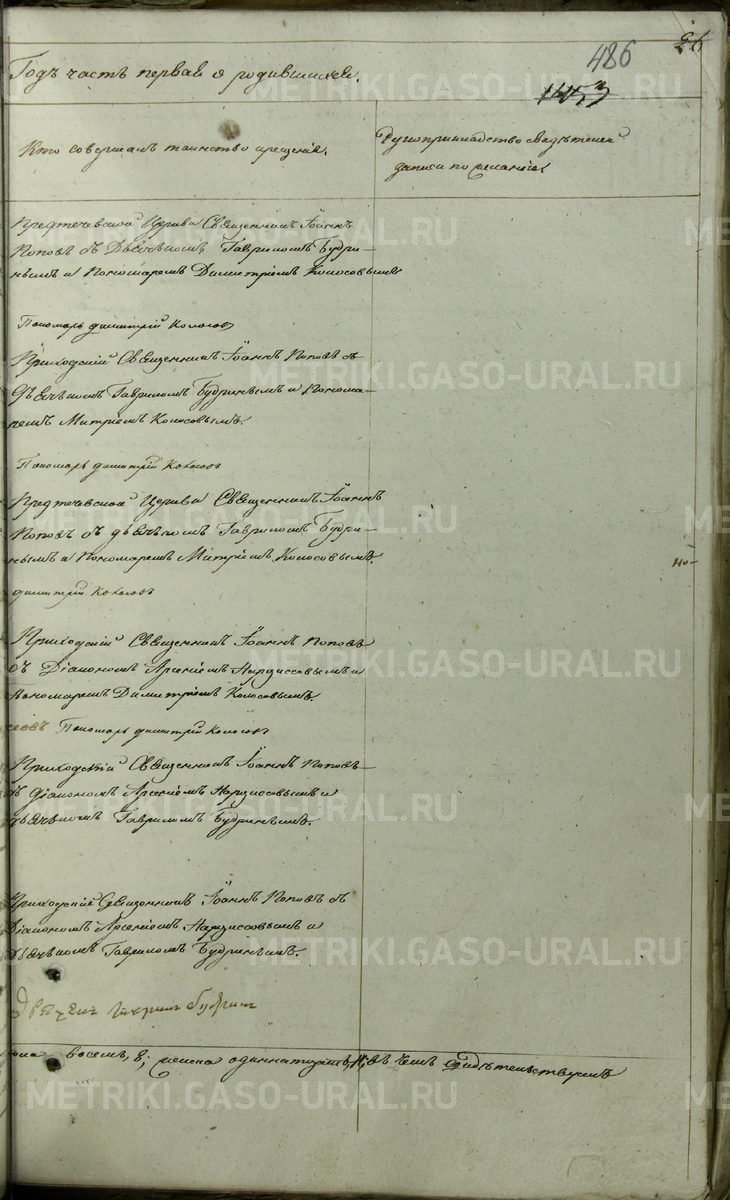 26
486
1457
Годъ часть первая о родившихся.
Кто совершалъ таинство крещенія.
Рукоприкладство свидѣтелей
записи по желанію
Предтечевской Церкви Священникъ Іоаннъ
Поповъ съ Дьячькомъ Гавриломъ Будри-
нымъ и Пономаремъ Димитріемъ Колосовымъ
Пономарь Димитрій Колосовъ
Приходскій Священникъ Іоаннъ Поповъ съ
Дьячькомъ Гавриломъ Будринымъ и Понома-
ремъ Митріемъ Колосовымъ.
Пономарь Димитрій Колосовъ
Предтечевской Церкви Священникъ Іоаннъ
Поповъ съ дьячькомъ Гавриломъ Будри-
нымъ и Пономаремъ Митріемъ Колосовымъ.
димитрій Колосовъ
Приходскій Священникъ Іоаннъ Поповъ
съ Діакономъ Арсеніемъ Нарциссовымъ и
Пономаремъ Димитріемъ Колосовымъ.
Пономарь димитрій Колосовъ
Приходскій Священникъ Іоаннъ Поповъ
съ Діакономъ Арсеніемъ Нарциссовымъ и
дьячькомъ Гавриломъ Будринымъ.
Приходскій Священникъ Іоаннъ Поповъ съ
Діакономъ Арсеніемъ Нарциссовымъ и
Дьячькомъ Гавриломъ Будринымъ.
Дьячекъ Гаврилъ Будринъ
восемь, 8; женска одиннатцать, 11, въ чемъ свидѣтельствуемъ
METRIKI.GASO-URAL.RU